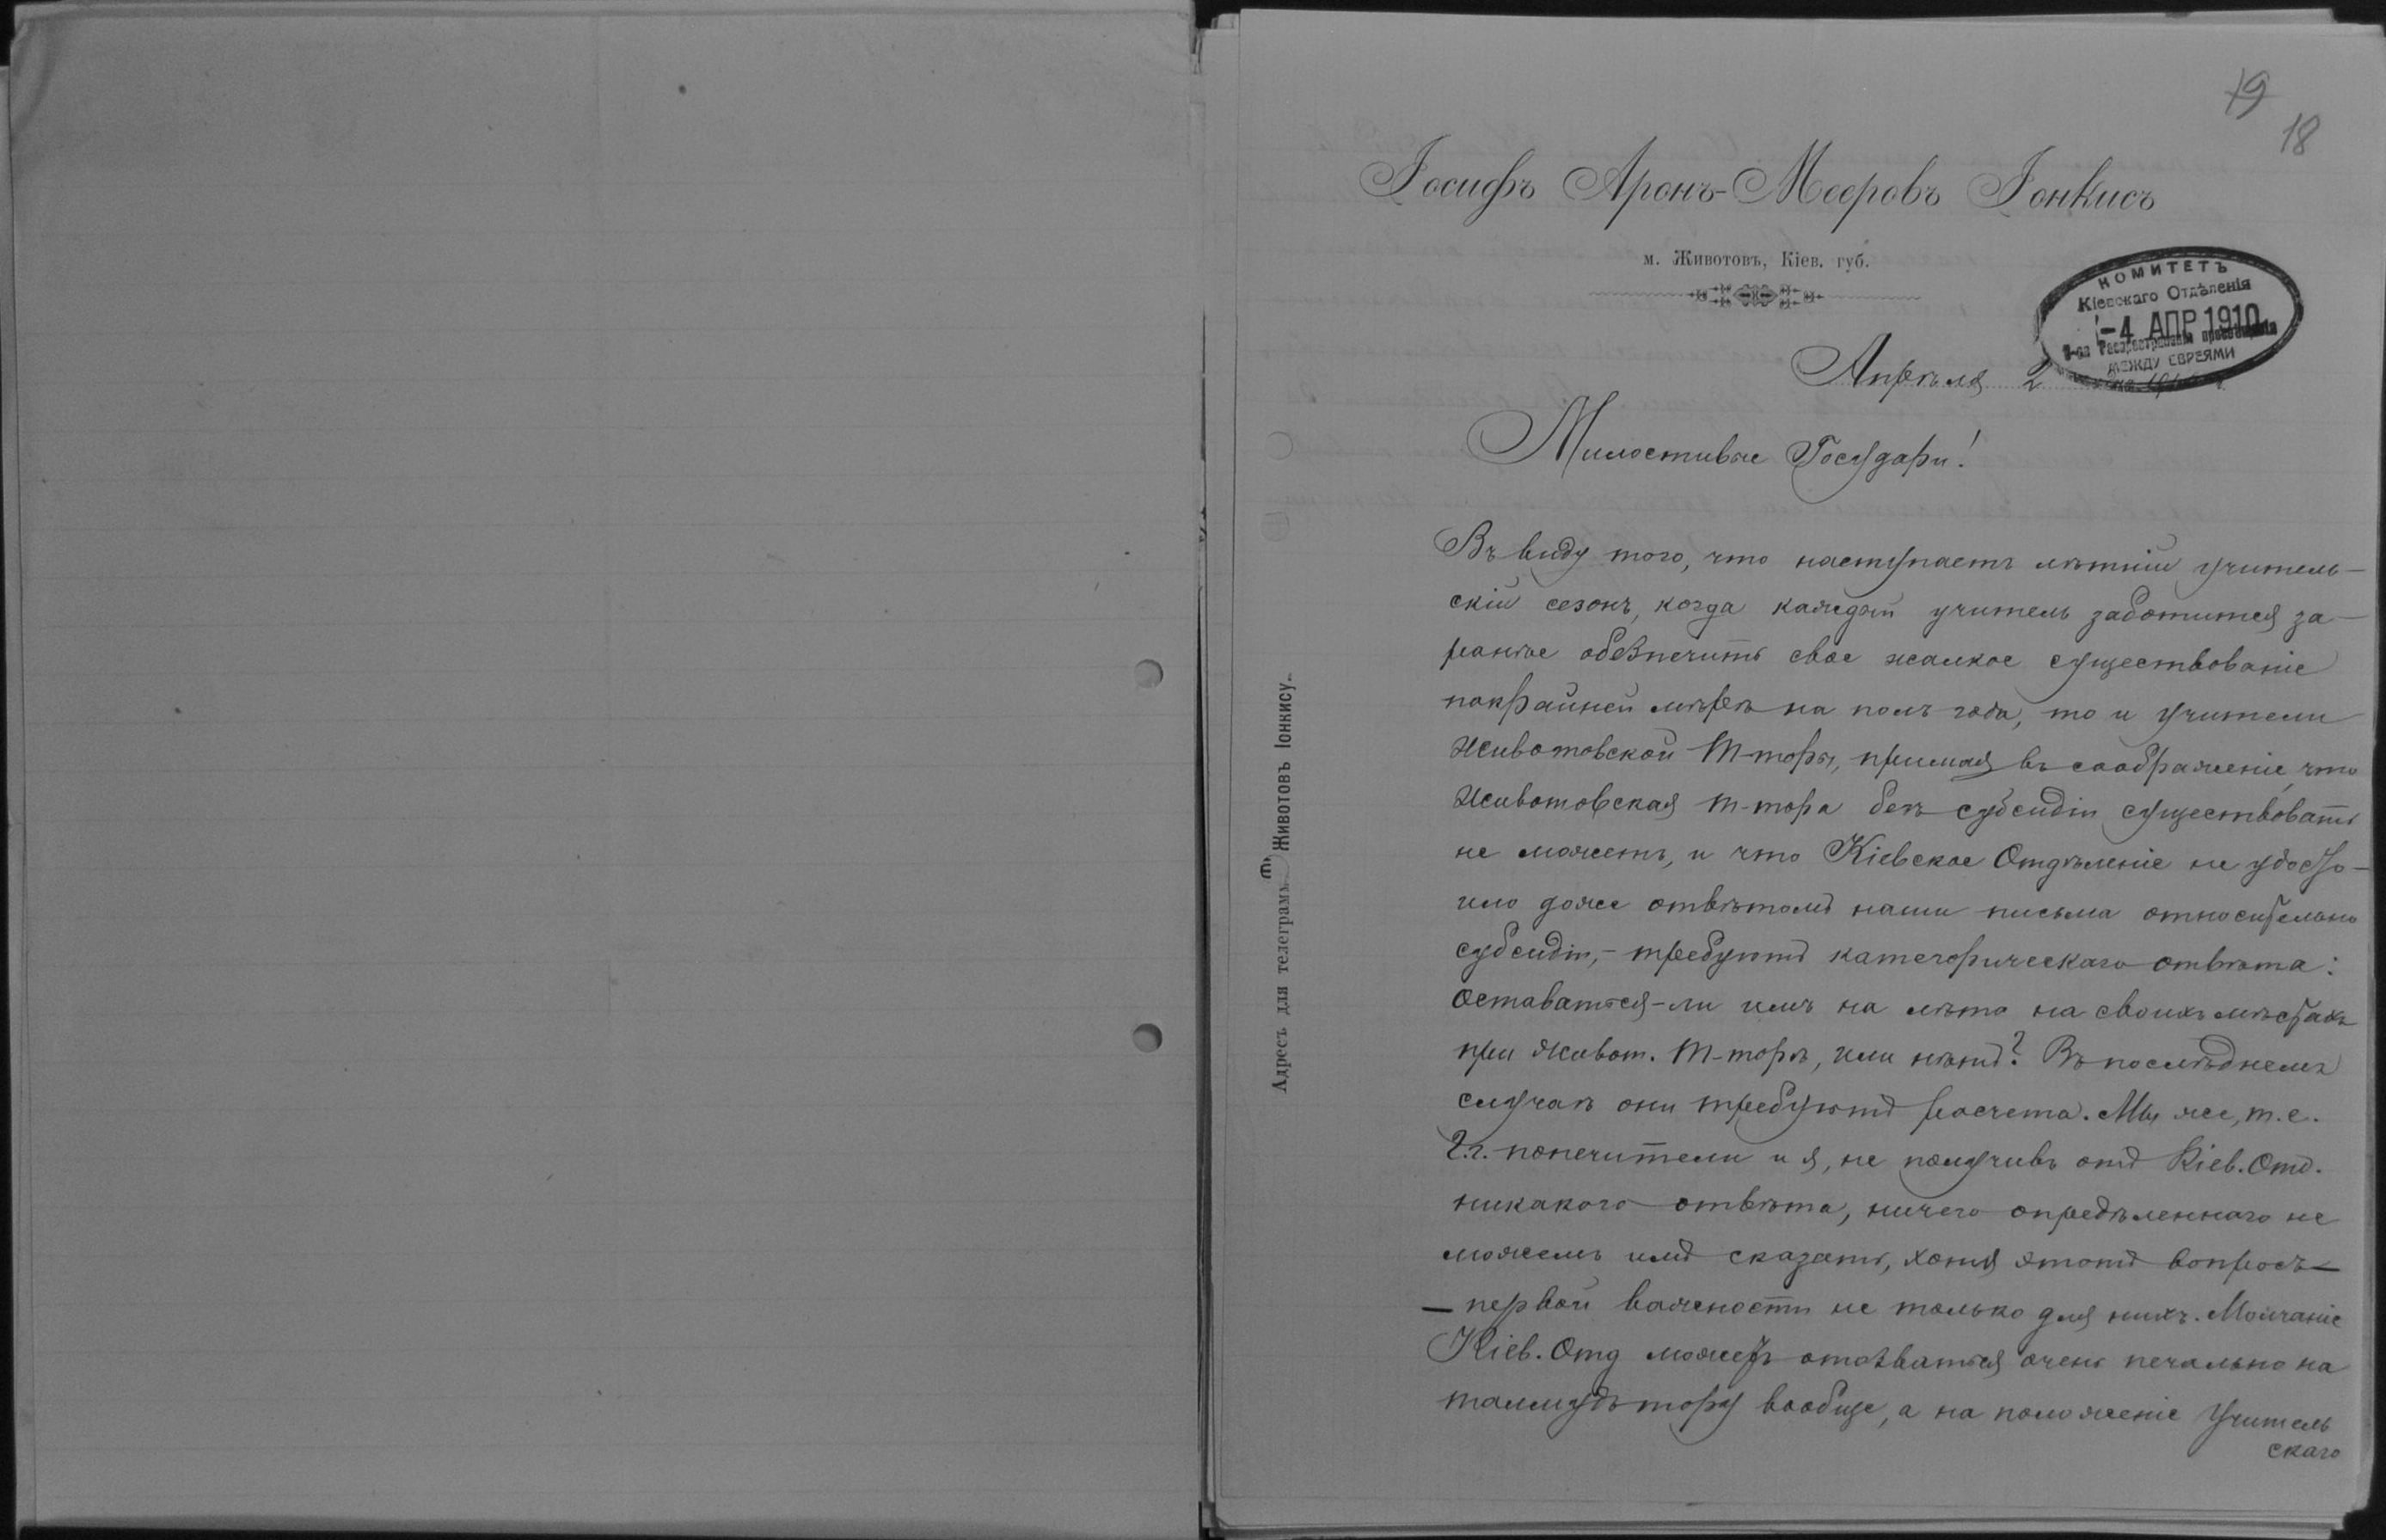 19
18
Іосифъ Аронъ-Мееровъ Іонкисъ
м. Животовъ, Кіев. губ.
КОМИТЕТЪ
Кіевскаго Отдѣленія
-4 АПР 1910
О-ва Распространенія просвѣщенія
МЕЖДУ ЕВРЕЯМИ
Апрѣля 2
Милостивые Государи!
Въ виду того, что наступаетъ лѣтній учитель-
скій сезонъ, когда каждый учитель заботится за-
ранѣе обезпечить свое жалкое существованіе
покрайней мѣрѣ на полъ года, то и учители
Животовской Т-торы, примая въ соображеніе, что
Животовская т-тора безъ субсидіи существовать
не можетъ, и что Кіевское Отдѣленіе не удосто-
ило даже отвѣтомъ наши письма относительно
субсидіи,- требуютъ категорическаго отвѣта:
Оставаться-ли имъ на лѣто на своихъ мѣстахъ
при Живот. Т-торѣ, или нѣтъ? Въ послѣднемъ
случаѣ они требуютъ расчета. Мы же, т.е.
Г.г. попечители и я, не получивъ отъ Кіев. Отд.
никакого отвѣта, ничего опредѣленнаго не
можемъ имъ сказать, хотя этотъ вопросъ—
— первой важности не только для нихъ. Молчаніе
Кіев. Отд можетъ отозваться очень печально на
талмудъ тору вообще, а на положеніе учитель
скаго
Адресъ для телеграммъ Животовъ Іонкису.